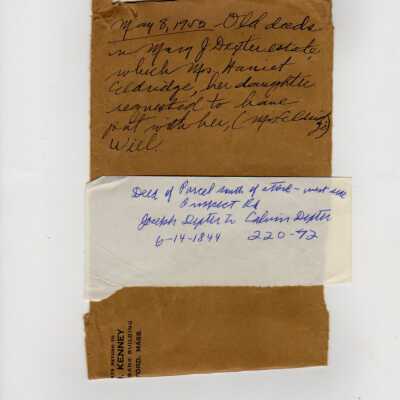 May 8, 1950 Old deeds
in Mary J Dexter estate,
which Mrs. Harriet
Eldridge, her daughter
requested to have
put with her, (Mrs. Eldridge's)
Will.
Deed of Parcel south of store - west side
Prospect Rd
Joseph Dexter to Calvin Dexter
6-14-1844 220-92
RETURN TO
KENNEY
BANK BUILDING
FORD, MASS.